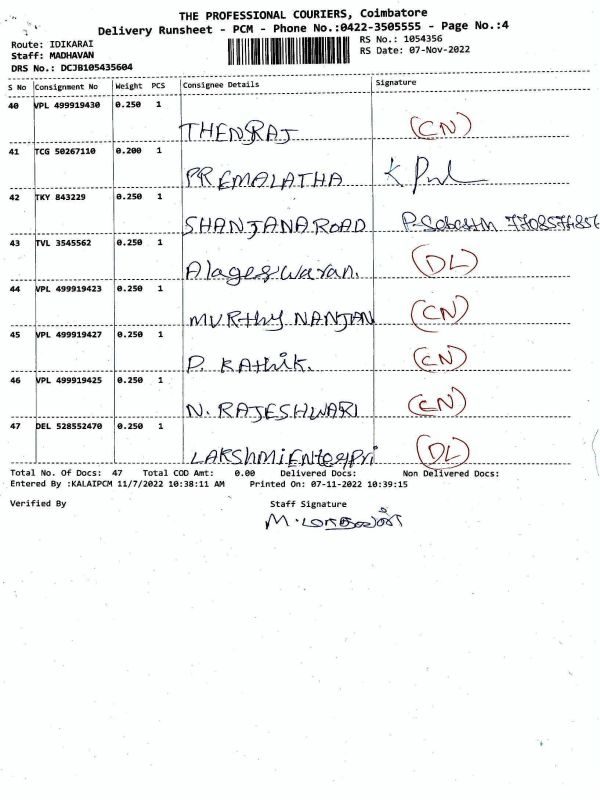 THE PROFESSIONAL COURIERS, Coimbatore
Delivery Runsheet - PCM - Phone No.:0422-3505555 - Page No.:4
Route: IDIKARAI
RS No.: 1054356
Staff: MADHAVAN
RS Date: 07-Nov-2022
DRS No.: DCJB105435604
S No Consignment No Weight PCS Consignee Details Signature
40 VPL 499919430 0.250 1
THENSRAJ (CN)
41 TCG 50267110 0.200 1
PREMALATHA K
42 TKY 843229 0.250 1
SHANJANA ROAD
43 TVL 3545562 0.250 1
Alageswaran. (DL)
44 VPL 499919423 0.250 1
MURTHY NANJAN (CN)
45 VPL 499919427 0.250 1
P. KAthik. (CN)
46 VPL 499919425 0.250 1
N. RAJESHWARI (CN)
47 DEL 528552470 0.250 1
LAKSHMI ENtegpri (DL)
Total No. Of Docs: 47 Total COD Amt: 0.00 Delivered Docs: Non Delivered Docs:
Entered By :KALAIPCM 11/7/2022 10:38:11 AM Printed On: 07-11-2022 10:39:15
Verified By Staff Signature
M.